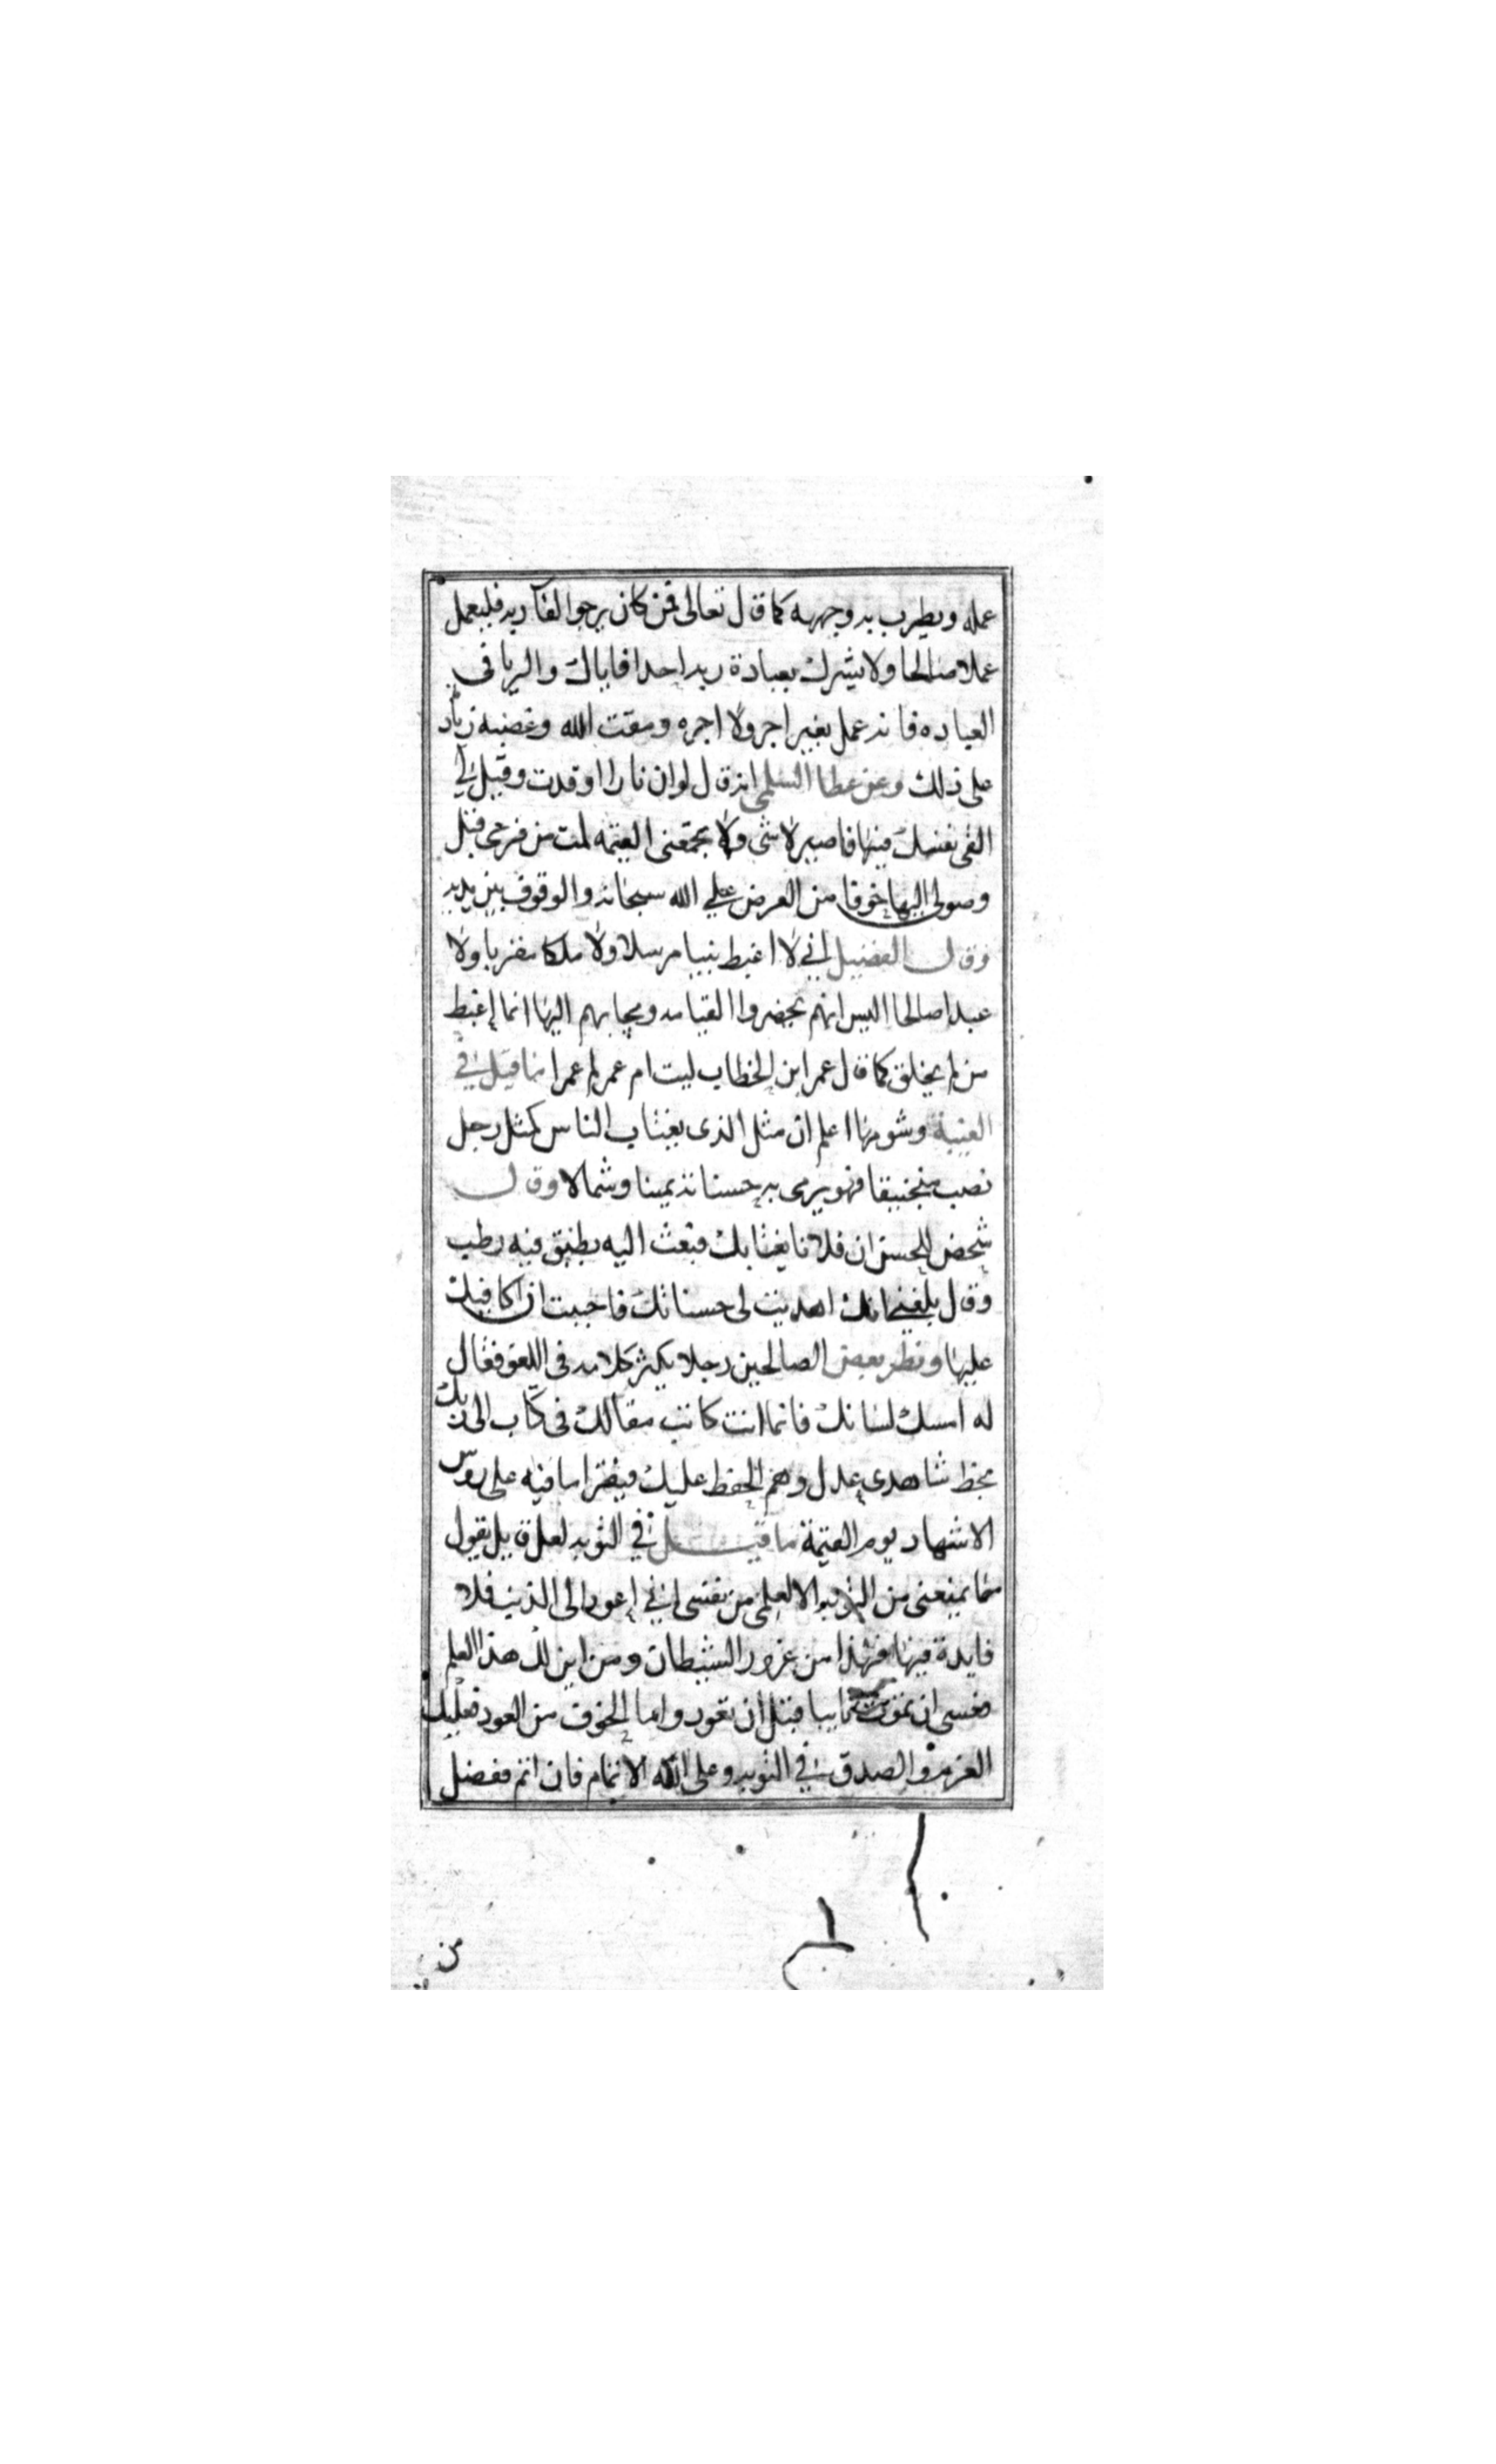 عمله ويطرب به وجهه كما قال تعالى فمن كان يرجوا لقآ ربه فليعمل
عملا صالحا ولا يشرك بعبادة ربه احدا فاياك والريا في
العباده فانه عمل بغير اجر ولا اجره ومقت الله وغضبه زياد
على ذلك وعن عطا السلمي انه قال لو ان نارا اوقدت وقيل لي
القي نفسك فيها فاصير لا شي ولا يجمعنى القيمه لمت من فرحي قبل
وصولى اليها خوفا من العرض علي الله سبحانه والوقوف بين يديه
وقال الفضيل اني لا اغبط نبيا مرسلا ولا ملكا مقربا ولا
عبدا صالحا اليس انهم يحضروا القيامه ويجابهم اليها انما اغبط
من لم يخلق كما قال عمر ابن الخطاب ليت ام عمر لم عمرا ما قيل في
الغيبة وشومها اعلم ان مثل الذى يغتاب الناس كمثل رجل
نصب منجنيقا فهو يرمى به حسناته يمينا وشمالا وقال
شخص للحسن ان فلانا يغتابك فبعث اليه بطبق فيه رطب
وقال بلغني انك اهديت لى حسناتك فاحببت ان اكافيك
عليها ونظر بعض الصالحين رجلا يكثر كلامه فى اللغو فقال
له امسك لسانك فانما انت كاتب مقالك فى كتاب الى ربك
بخط شاهدى عدل وهم الحفظ عليك فيقرا ما فيه على روس
الاشهاد يوم القيمة ما قيل في التوبه لعل قايل يقول
مما يمنعنى من التوبه الا لعلمى من نفسى اني اعود الى الذنب فلا
فايدة فيها فهذا من غرور الشيطان ومن اين لك هذا العلم
فعسى ان تموت تايبا قبل ان تعود واما الخوف من العود فعليك
العزم والصدق في التوبه وعلى الله الاتمام فان اتم فضل
من